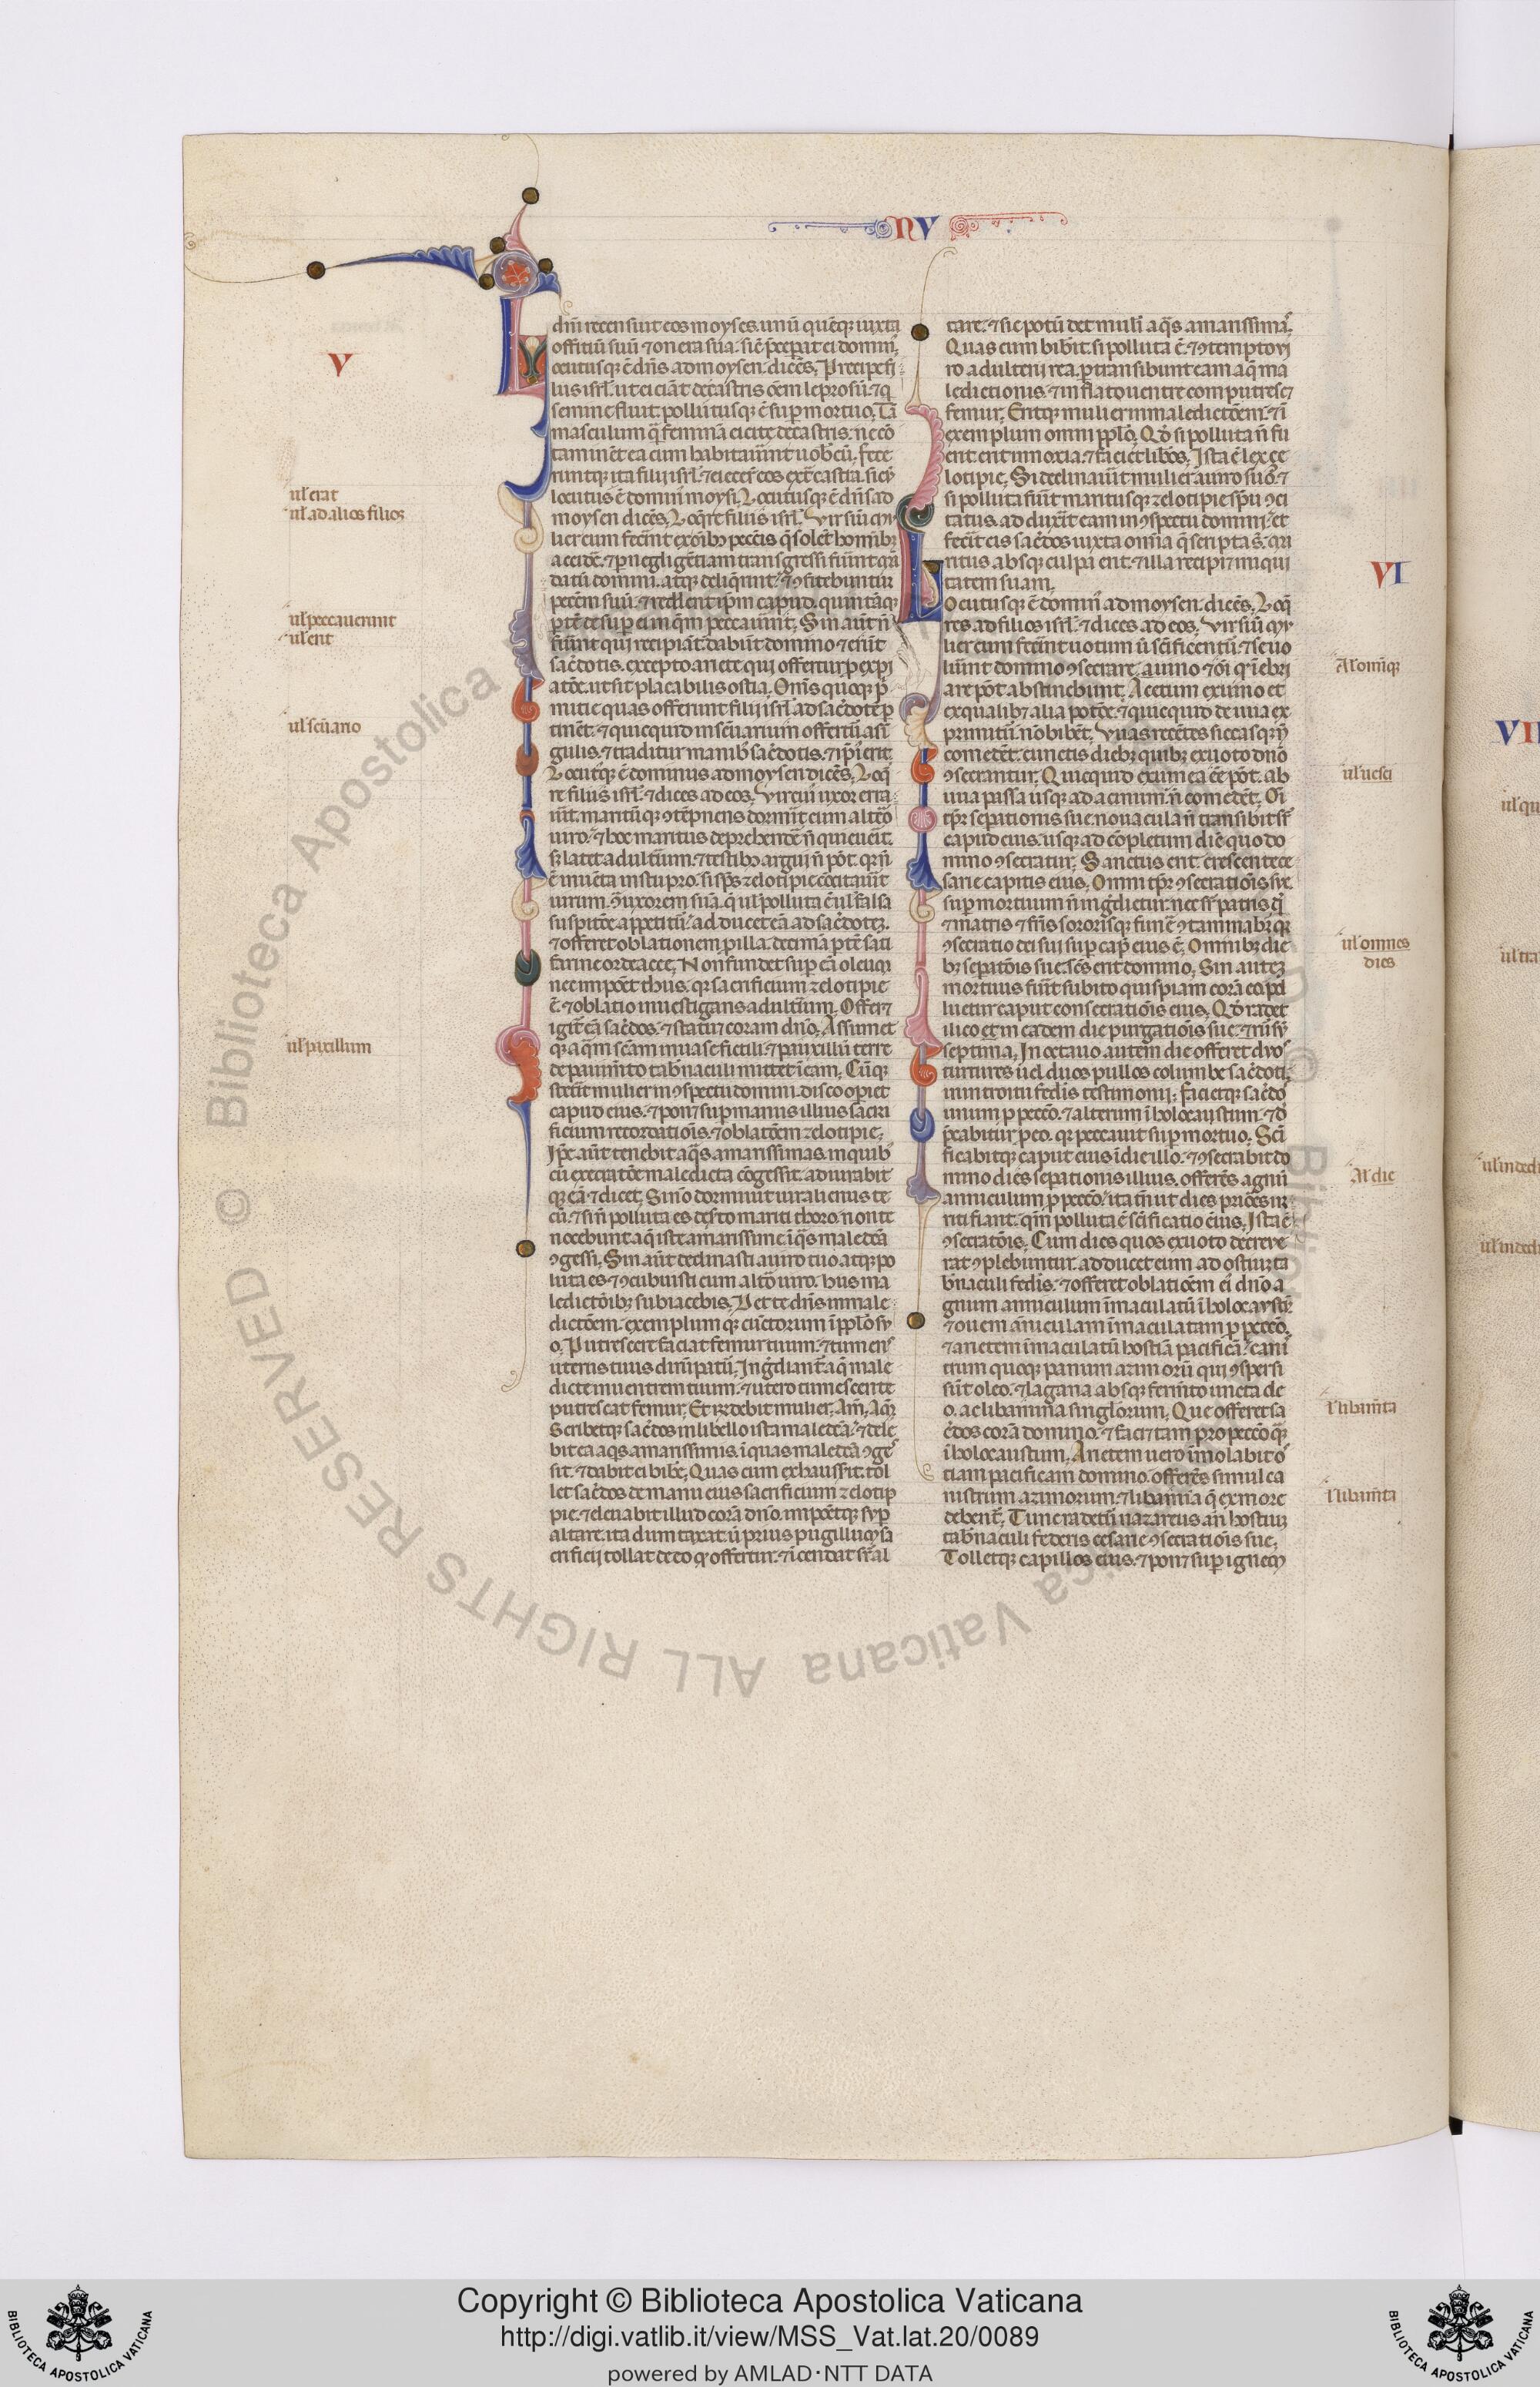 NV
V
dn̄i recensuit eos moyses. unū quēq; iuxta
offitiū suū ⁊ onera sua. sic̄ p̄ceperat ei domin᷒.
Locutusq; ē dn̄s ad moysen. dicēs. Precipe fi
liis isrl̄. ut eiciāt de castris om̄em leprosū. ⁊ q̄
semine fluit. pollutusq; ē sup mortuo. Tā
masculum q̄ feminā eicite de castris. ne cō
taminēt ea cum habitauīint uob̄cū. fece
runtq; ita filii isrl̄. ⁊ eiecer̄t eos ext̄ castra. sicut
locutus ē domin᷒ moysi. Locutusq; ē dn̄s ad
moysen dicēs. Loq̄re filiis isrl̄. Vir siue mu
lier cum fecīnt ex om̄ib᷒ peccatis q̄ solēt hominib᷒
accidē. ⁊ p negligētiam transgressi fuīnt mā
datū domini. atq; deliq̄rint. ⁊ ꝯfitebuntur
peccm̄ suū. ⁊ reddent ipm̄ capud. quintāq;
ptē desup ei in quem peccauīint. Sin aūt n̄
fuīint qui recipiāt. dabūt domino ⁊ erūt
sac̄dotis. excepto ariete qui offertur p expi
atōe. ut sit placabilis ostia. Om̄s quoq; p̄
mitie quas offerunt filii isrl̄. ad sac̄dotē p
tinēt. ⁊ quicquid in sc̄uarium offertū a sī
gulis. ⁊ traditur manib᷒ sac̄dotis. ⁊ ip̄i erit.
Locutusq; ē dominus ad moysen dicēs. Loq̄
re filiis isrl̄. ⁊ dices ad eos. Vir cui᷒ uxor erra
uīt. maritūq; ꝯtēpnens dormīit cum altō
uiro. ⁊ hoc maritus deprehendē n̄ quieuīt.
sꝫ latet adult̄ium. ⁊ testib᷒ argui n̄ pōt. qr̄ n̄
ē inuēta in stupro. si sp̄s zelotipie ꝯcitauīt
uirum. ꝯ̄ uxorem suā. q̄ ul̄ polluta ē ul̄ falsa
suspitōe appetitū. adducet eā ad sac̄dotē.
⁊ offeret oblationem p illa. decimā ptē sati
farine ordeacee. Non fundet sup eā oleum
nec imponet thus. qr̄ sacrificium zelotipie
ē. ⁊ oblatio inuestigans adult̄ium. Offeret
igit̄ eā sac̄dos. ⁊ statuet coram dn̄o. Assumet
q; aq̄m sc̄am in uase fictili. ⁊ pauxillū terre
de pauimto tab̄naculi mittet ī eam. Cūq;
stetīit mulier in ꝯspectu domini. discooperiet
capud eius. ⁊ ponet sup manus illius sacri
ficium recordatiōis. ⁊ oblatōem zelotipie.
Ip̄e aūt tenebit aq̄s amarissimas. in quib᷒
cū execratōe maledicta ꝯgessit. adiurabit
q; eā ⁊ dicet. Si nō dormiuit uir alienus te
cū. ⁊ si n̄ polluta es deserto mariti thoro. non te
nocebunt aq̄ iste amarissime ī q̄s maledcā
ꝯgessi. Sin aūt declinasti a uiro tuo atq; po
luta es. ⁊ ꝯcubuisti cum altō uiro. his ma
ledictōib᷒ subiacebis. Det te dn̄s in male
dictōem. exemplumq; cūctorum ī pplō su
o. Putrescere faciat femur tuum. ⁊ tumens
uterus tuus dirūpatur. Ingrediant̄ aq̄ male
dicte in uentrem tuum. ⁊ utero tumescente
putrescat femur. Et rn̄debit mulier. Am̄. Am̄.
Scribetq; sac̄dos in libello ista maledcā. ⁊ dele
bit ea aq̄s amarissimis. ī quas maledcā ꝯges
sit. ⁊ dabit ei bibē. Quas cum exhauserit. tol
let sac̄dos de manu eius sacrificium zeloti
pie. ⁊ eleuabit illud corā dn̄o. imponetq; sup
altare. ita dumtaxat ū prius pugillum sa
crificii tollat de eo q̄ offertur. ⁊ īcendat sr̄ al
ul̄ erat
ul̄ ad alios filios
ul̄ peccauerunt
ul̄ erit
ul̄ sc̄uario
ul̄ pixillum
tare. ⁊ sic potū det mulīi aq̄s amarissimas.
Quas cum bibīit. si polluta ē. ⁊ ꝯtempto ui
ro adulterii rea. ptransibunt eam aq̄ ma
ledictionis. ⁊ inflato uentre computrescet
femur. Eritq; mulier in maledictōem. ⁊ ī
exemplum omni pplō. Qd̄ si polluta n̄ fu
erit. erit innoxia. ⁊ faciet libōs. Ista ē lex ze
lotipie. Si declinauīit mulier a uiro suo. ⁊
si polluta fuīit. maritusq; zelotipie spū ꝯci
tatus. adduxīt eam in ꝯspectu domini. et
fecīt eis sac̄dos iuxta omīa q̄ scripta sūt. ma
ritus absq; culpa erit. ⁊ illa recipiet iniqui
tatem suam.
VI
Locutusq; ē domin᷒ ad moysen. dicēs. Loq̄
res ad filios isrl̄. ⁊ dices ad eos. Vir siue mu
lier cum fecīnt uotum ut sc̄ificentur. ⁊ se uo
luīint domino ꝯsecrare. a uino ⁊ om̄i q̄ īebri
are pōt abstinebunt. Acetum ex uino et
ex qualibet alia potōe. ⁊ quicquid de uua ex
primitur. nō bibēt. Vuas recētes siccasq; n̄
comedēt. cunctis dieb᷒ quib᷒ ex uoto dn̄o
ꝯsecrantur. Quicquid ex uinea ēe pōt. ab
uua passa usq; ad acinum. n̄ comedēt. Om̄i
tpr̄ sepationis sue nouacula n̄ transibit sr̄
capud eius. usq; ad cōpletum diē quo do
mino ꝯsecratur. Sanctus erit. crescente ce
sarie capitis eius. Omni tpr̄ ꝯsecrationis sue
sup mortuum n̄ ingredietur. nec sr̄ patris qi
⁊ matris ⁊ fr̄is sororisq; funē ꝯtaminabit̄. qr̄
ꝯsecratio dei sui sup cap̄ eius ē. Omnib᷒ die
b᷒ sepatiōis sue sc̄s erit domino. Sin autē
mortuus fuīt subito quispiam corā eo. pol
luetur caput consecratiōis eius. Qd̄ radet
ilico et in eadem die purgatiōis sue. ⁊ rursū
septima. In octauo autem die offeret duos
turtures ul̄ duos pullos columbe sac̄doti.
in introitu federis testimonii. facietq; sac̄dos
unum p peccō. ⁊ alterum ī holocaustum. ⁊ de
p̄cabitur p eo. qr̄ peccauit sup mortuo. Sc̄i
ficabitq; caput eius ī die illo. ⁊ ꝯsecrabit do
mino dies sepationis illius. offerēs agnū
anniculum p peccō. ita tn̄ ut dies priores ir
riti fiant. qm̄ polluta ē sc̄ificatio eius. Ista ē
ꝯsecratōis. Cum dies quos ex uoto decreue
rat ꝯplebuntur. adducet eum ad ostium ta
b̄naculi federis. ⁊ offeret oblatiōem ei᷒ dn̄o. a
gnum anniculum īmaculatū ī holocaustum
⁊ ouem āniculam īmaculatam p peccō.
⁊ arietem īmaculatū hostiā pacificā. cani
trum quoq; panum azimorū qui ꝯspersi
sūt oleo. ⁊ lagana absq; fermto uncta ole
o. ac libamina singlorum. Que offeret sa
c̄dos corā domino. ⁊ faciet tam pro peccō q̄
ī holocaustum. Arietem uero īmolabit os
tiam pacificam domino. offerēs simul ca
nistrum azimorum. ⁊ libamīa q̄ ex more
debent̄. Tunc radet̄ nazareus an̄ hostium
tab̄naculi federis cesarie ꝯsecratiōis sue.
Tolletq; capillos eius. ⁊ ponet sup ignem
Al̄ omīq;
ul̄ uesci
ul̄ omnes
dies
Al̄ die
l̄ libam̄ta
l̄ libam̄ta
VII
Copyright © Biblioteca Apostolica Vaticana
http://digi.vatlib.it/view/MSS_Vat.lat.20/0089
powered by AMLAD·NTT DATA
BIBLIOTECA APOSTOLICA VATICANA
BIBLIOTECA APOSTOLICA VATICANA
© Biblioteca Apostolica Vaticana ALL RIGHTS RESERVED